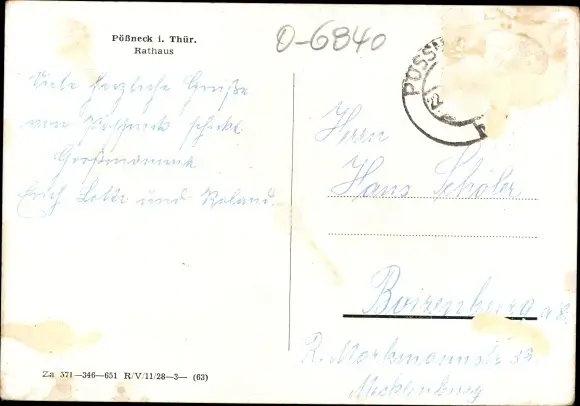 Pößneck i. Thür.
Rathaus
O-6840
PÖSSN
22
Viele herzliche Grüße
von Pößneck schickt
Großmama
Erich Lotte und Roland.
Herrn
Hans Schöler
Boizenburg a. E.
R. Markmannstr 32
Mecklenburg
Za 571—346—651 R/V/11/28—3— (63)